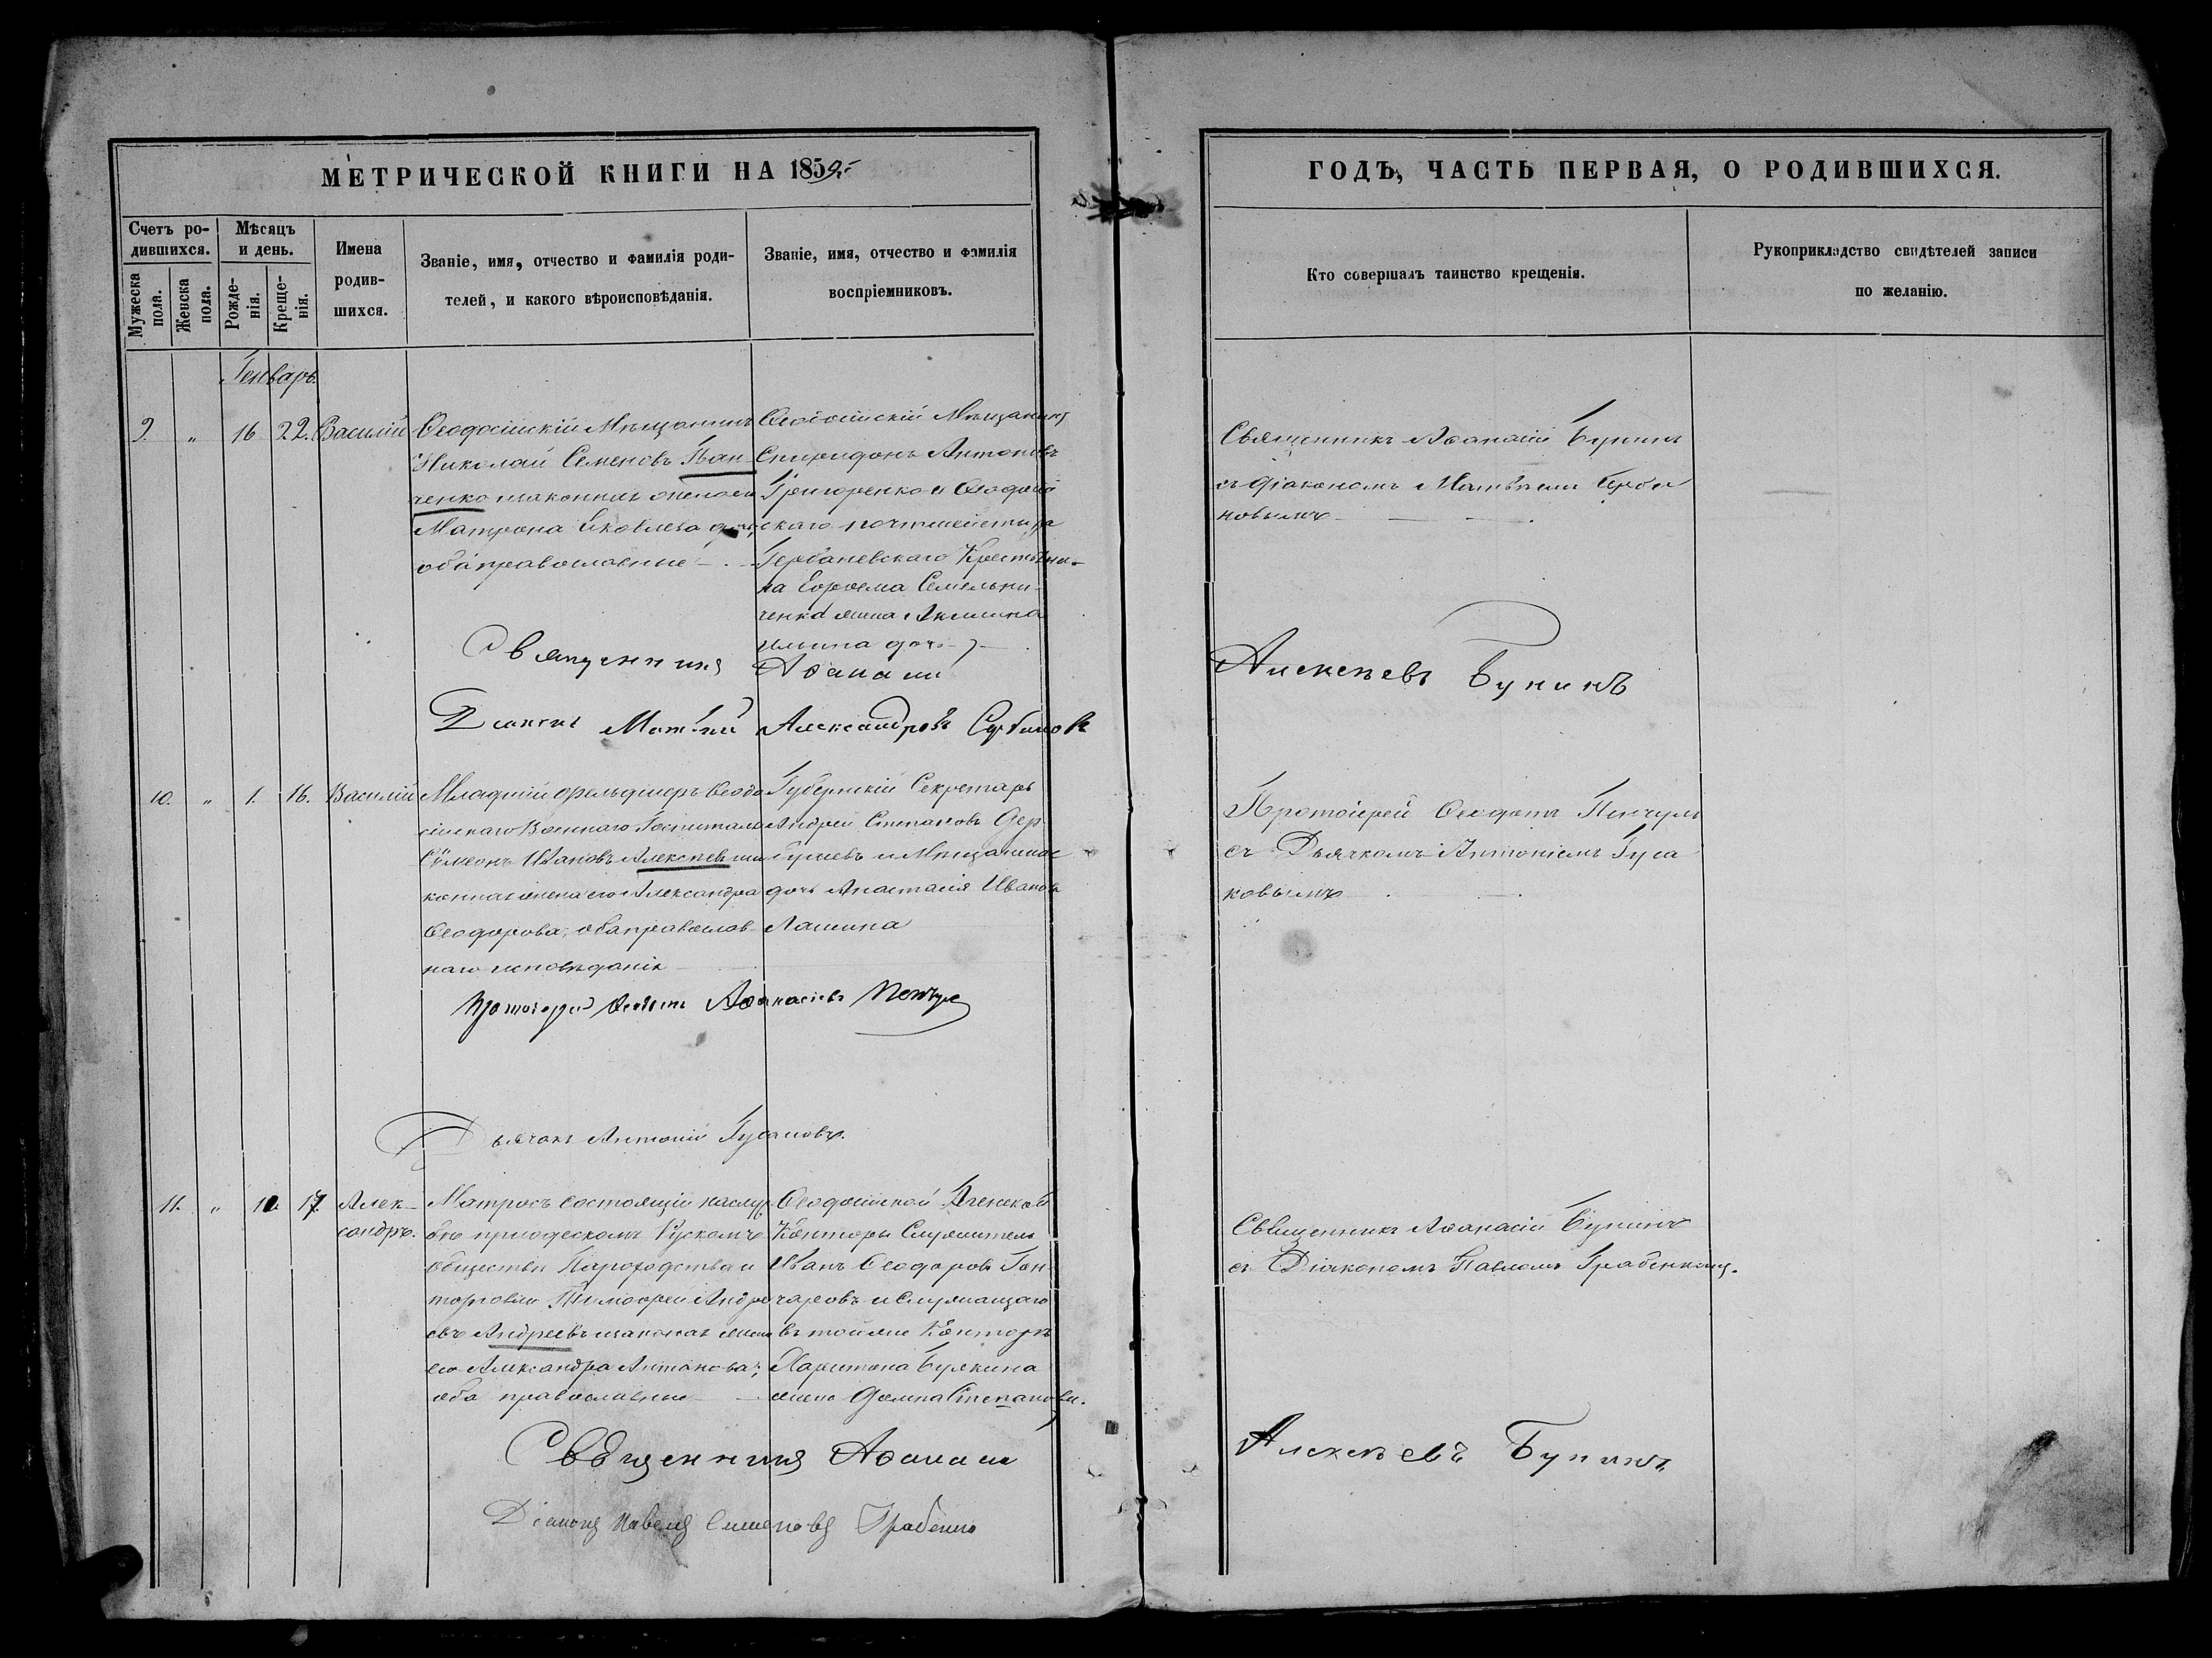 МЕТРИЧЕСКОЙ КНИГИ НА 1859.
ГОДЪ, ЧАСТЬ ПЕРВАЯ, О РОДИВШИХСЯ.
Счетъ ро-
дившихся.
Мужеска
пола.
Женска
пола.
Мѣсяцъ
и день.
Рожде-
нія.
Креще-
нія.
Имена
родив-
шихся.
Званіе, имя, отчество и фамилія роди-
телей, и какого вѣроисповѣданія.
Званіе, имя, отчество и фамилія
воспріемниковъ.
Кто совершалъ таинство крещенія.
Рукоприкладство свидѣтелей записи
по желанію.
Генварь.
9. " 16 22. Василій
Ѳеодосійскій Мѣщанинъ
Николай Семеновъ Иван
ченко и законная жена его
Матрона Яковлева дочь,
оба православные
Ѳеодосійскій Мѣщанинъ
Спиридонъ Антоновъ
Григоренко и Ѳеодосій
скаго почтмейстера
Гербаневскаго Крестьяни-
на Ефрема Семельни-
ченка жена Акилина
Ильина дочь
Священникъ Аѳанасій Бунинъ
съ Діакономъ Матвѣемъ
новымъ
Священникъ Аѳанасій Алексѣевъ Бунинъ
Діаконъ Матвѣй Александровъ
10. " 1. 16. Василій
Младшій фельдшеръ Ѳеодо
сійскаго Военнаго Госпиталя
Сѵмеонъ Ивановъ Алексѣевъ и за
конная жена его Александра
Ѳеодорова, оба православ
наго исповѣданія
Губернскій Секретарь
Андрей Степановъ Дер
гушевъ и Мѣщанская
дочь Анастасія Иванова
Лашина
Протоіерей Ѳеодотъ Пенчулъ
съ Дьячкомъ Антоніемъ Гуса
ковымъ
Протоіерей Ѳеодотъ Аѳанасіевъ Пенчулъ
Дьячокъ Антоній Гусаковъ.
11. " 10 17. Алек-
сандръ.
Матросъ состоящій на служ
бѣ при одескомъ Рускомъ
Обществѣ Пароходства и
торговли Тимофей Андре
евъ Андреевъ и законная жена
его Александра Антонова;
оба православные
Ѳеодосійской Агенской
Конторы Служитель
Иванъ Ѳеодоровъ Гон
чаровъ и Служащаго
въ той же Конторѣ
Харитона Булкина
жена Домна Степанова.
Священникъ Аѳанасій Бунинъ
съ Діакономъ Павломъ Грабенкомъ.
Священникъ Аѳанасій Алексѣевъ Бунинъ
Діаконъ Павелъ Симеоновъ Грабенко